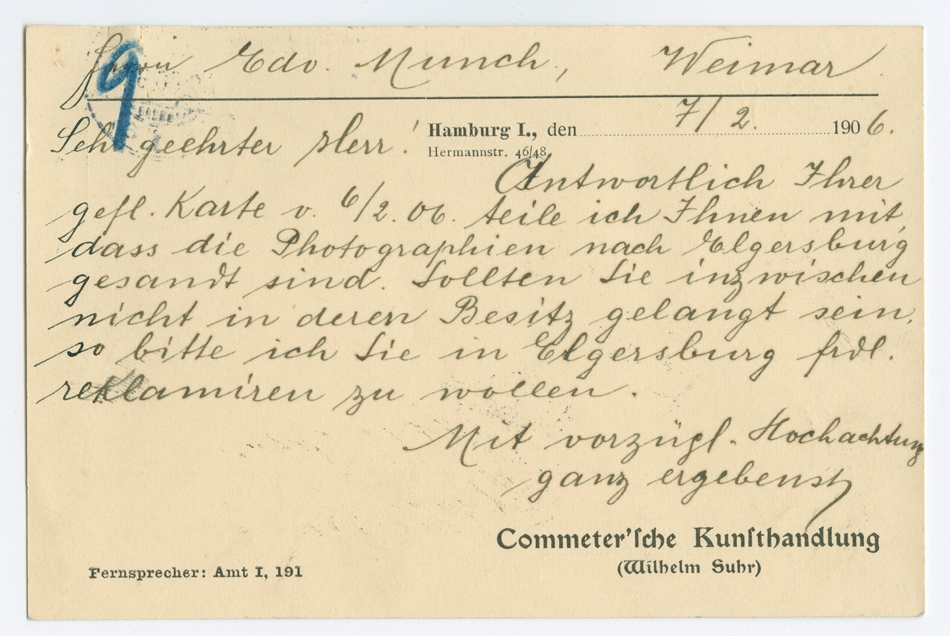 Herrn Edv. Munch, Weimar.
9
Sehr geehrter Herr! Hamburg I., den 7/2. 1906.
Hermannstr. 46/48.
Antwortlich Ihrer
gefl. Karte v. 6/2. 06. teile ich Ihnen mit,
dass die Photographien nach Elgersburg
gesandt sind. Sollten Sie inzwischen
nicht in deren Besitz gelangt sein,
so bitte ich Sie in Elgersburg frdl.
reklamiren zu wollen.
Mit vorzügl. Hochachtung
ganz ergebenst
Commeter'ſche Kunſthandlung
(Wilhelm Suhr)
Fernsprecher: Amt I, 191